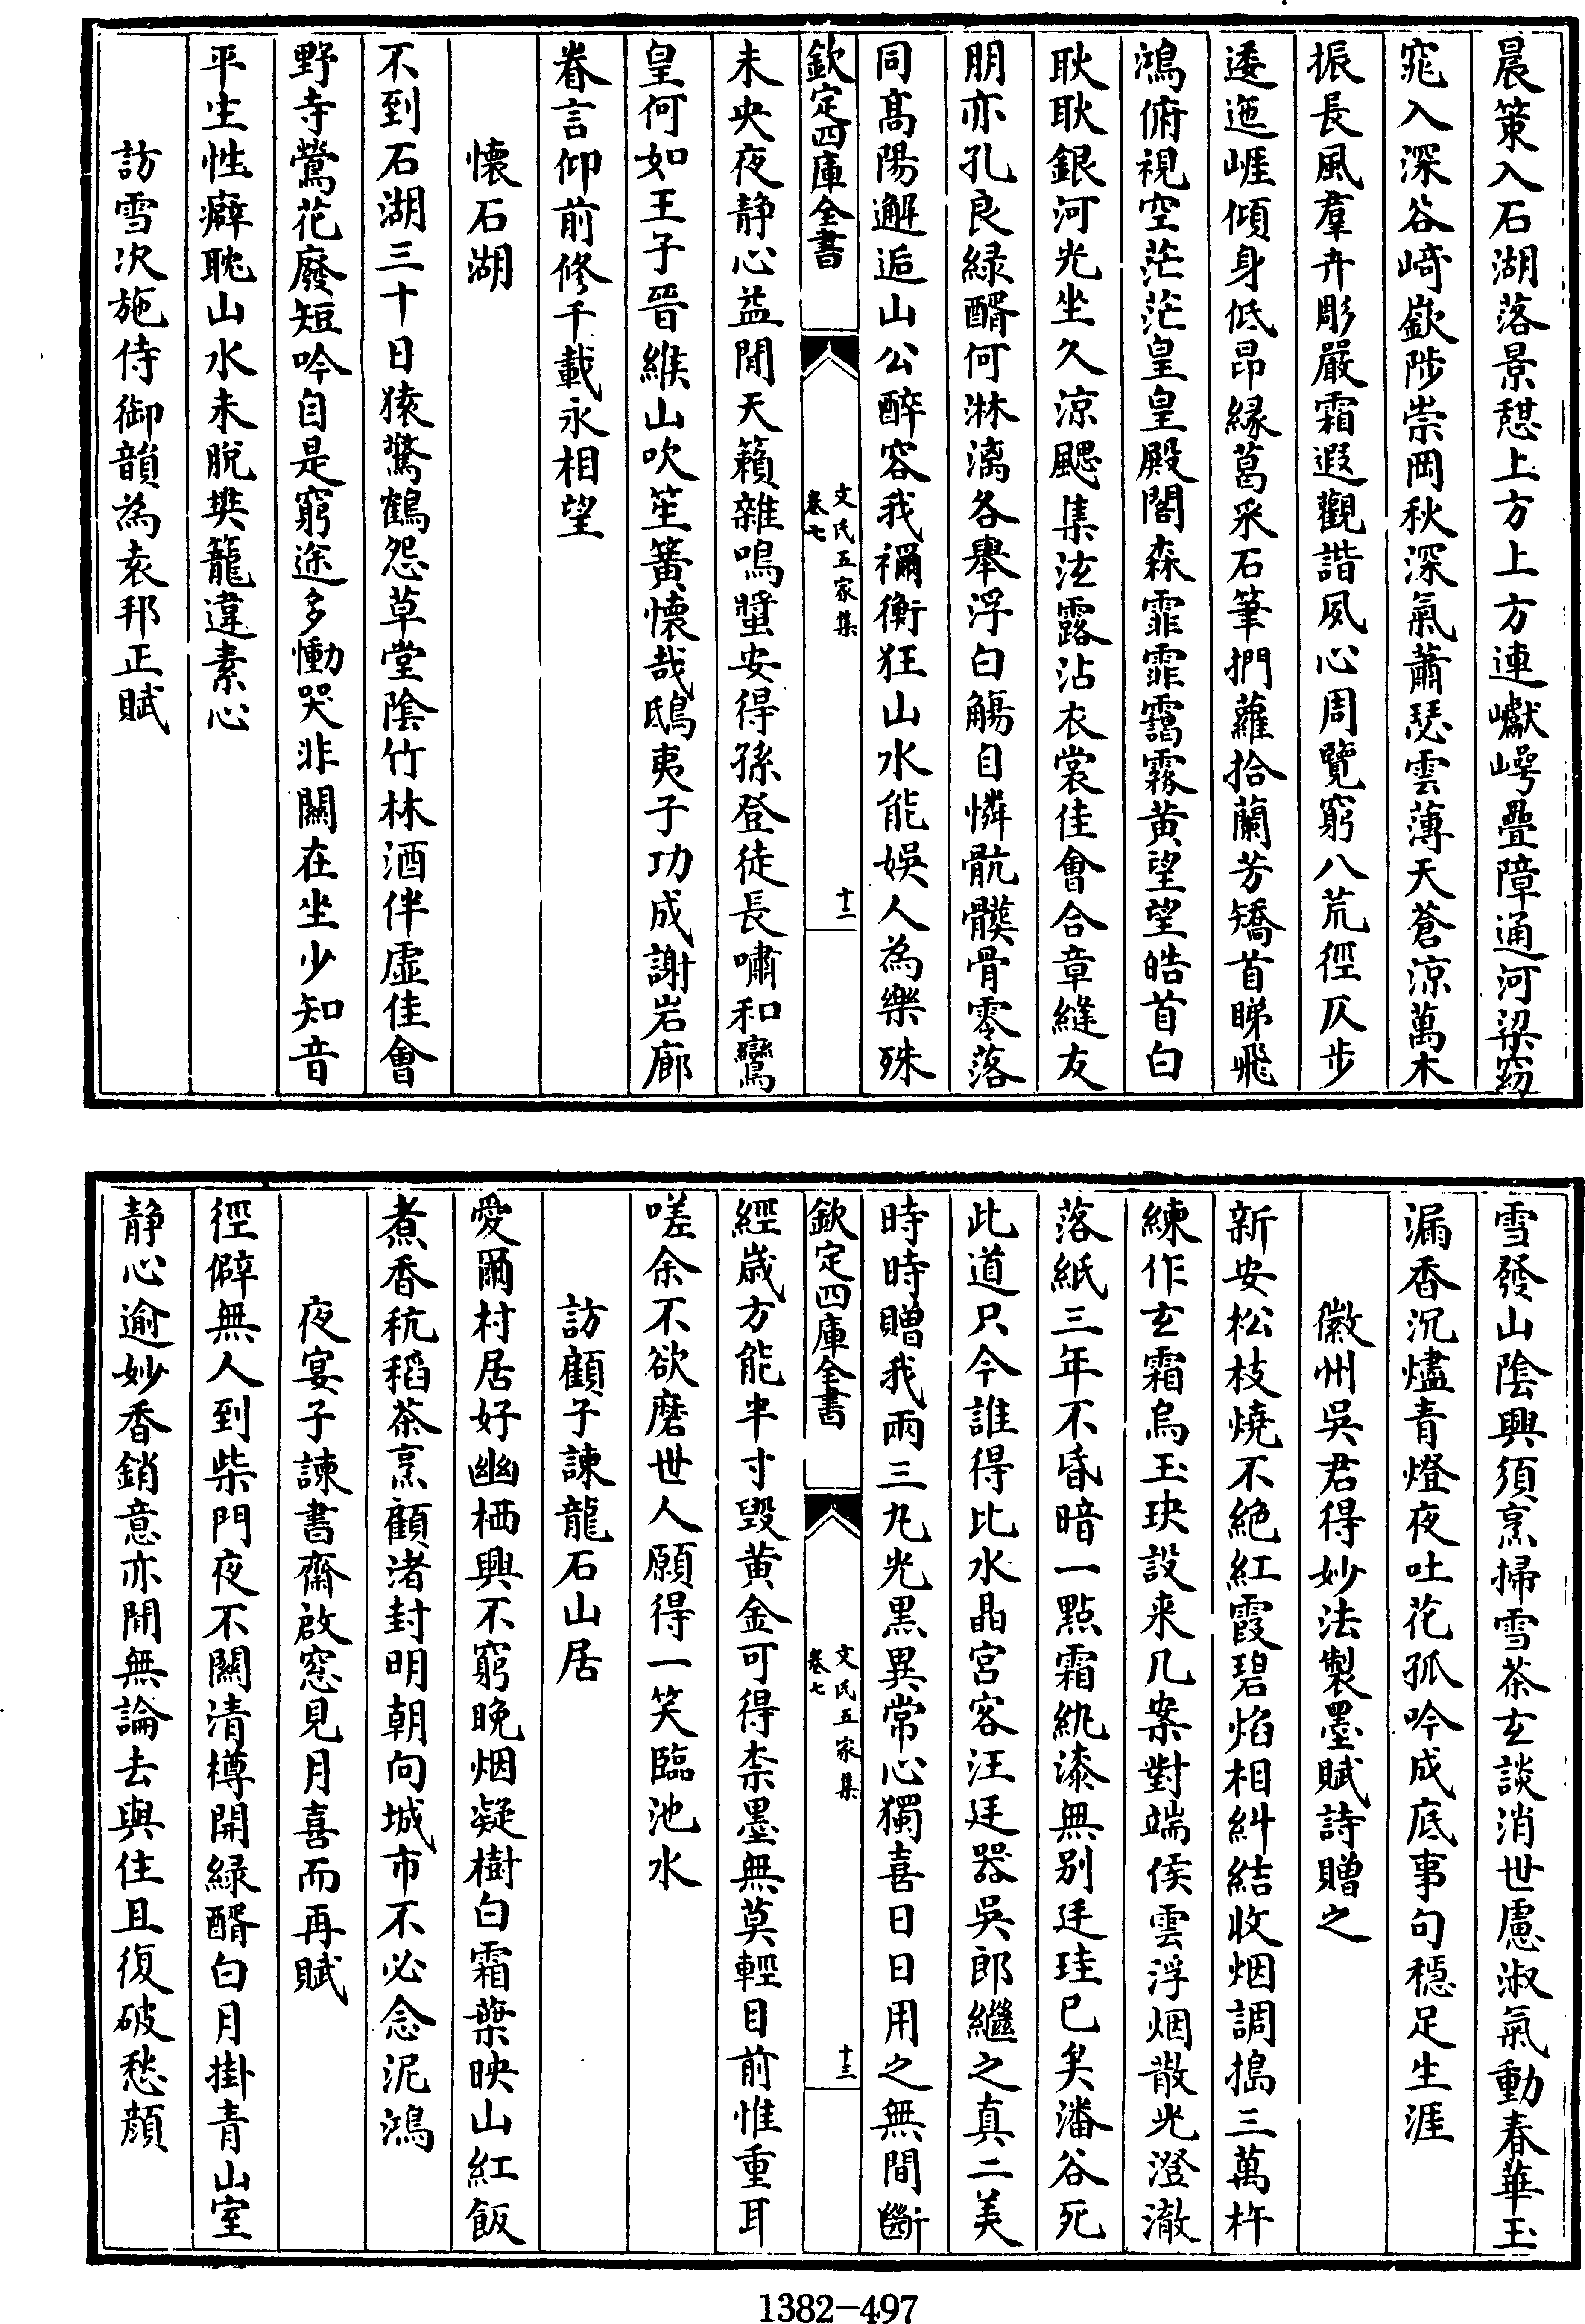 晨策入石湖落景憇上方上方連巘崿疊障通河梁窈
窕入深谷﨑嶔陟崇岡秋深氣蕭瑟雲薄天蒼涼萬木
振長風羣卉彫嚴霜遐觀諧夙心周覽窮八荒徑仄步
逶迤崕傾身低昂緣葛采石筆捫蘿拾蘭芳矯首睇飛
鴻俯視空茫茫皇皇殿閣森霏霏靄霧黄望望皓首白
耿耿銀河光坐久涼颸集泫露沾衣裳佳會合章縫友
朋亦孔良緑醑何淋漓各舉浮白觴自憐骯髒骨零落
同髙陽邂逅山公醉容我禰衡狂山水能娛人為樂殊
欽定四庫全書
文氏五家集
卷七
十二
未央夜静心益閒天籟雜鳴螿安得孫登徒長嘯和鸞
皇何如王子晉緱山吹笙簧懷哉鴟夷子功成謝岩廊
眷言仰前修千載永相望
懷石湖
不到石湖三十日猿驚鶴怨草堂陰竹林酒伴虛佳會
野寺鶯花廢短吟自是窮途多慟哭非關在坐少知音
平生性癖耽山水未脫樊籠違素心
訪雪次施侍御韻為袁邦正賦
雪發山陰興須烹掃雪茶玄談消世慮淑氣動春華玉
漏香沉燼青燈夜吐花孤吟成底事句穩足生涯
徽州吳君得妙法製墨賦詩贈之
新安松枝燒不絶紅霞碧焰相糾結收烟調搗三萬杵
練作玄霜烏玉玦設来几案對端侯雲浮烟散光澄澈
落紙三年不昏暗一點霜紈漆無别廷珪已矣潘谷死
此道只今誰得比水晶宮客汪廷器吳郎繼之真二美
時時贈我兩三丸光黒異常心獨喜日日用之無間斷
欽定四庫全書
文氏五家集
卷七
十三
經歳方能半寸毀黄金可得柰墨無莫輕目前惟重耳
嗟余不欲磨世人願得一笑臨池水
訪顧子諫龍石山居
愛爾村居好幽栖興不窮晚烟凝樹白霜葉映山紅飯
煮香秔稻茶烹顧渚封明朝向城市不必念泥鴻
夜宴子諫書齋啟窓見月喜而再賦
徑僻無人到柴門夜不關清樽開緑醑白月掛青山室
静心逾妙香銷意亦閒無論去與住且復破愁顔
1382-497